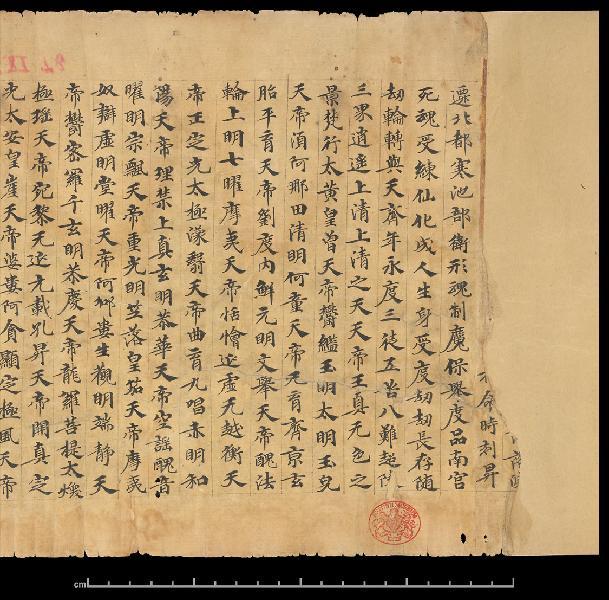 命時刻昇
遷北都寒池部衛形魂制魔保舉度品南宮
死魂受練仙化成人生身受度劫劫長存隨
劫輪轉與天齊年永度三徒五苦八難超
三界逍遙上清上清之天天帝玉真无色之
景梵行太黃皇曾天帝鬱繿玉明太明玉完
天帝湏阿那田清明何童天帝元育齊京玄
胎平育天帝劉度內鮮元明文舉天帝醜法
輪上明七曜摩夷天帝恬憎延虛无越衡天
帝正定光太極濛翳天帝曲育九唱赤明和
陽天帝理禁上真玄明恭華天帝空謠醜音
曜明宗飄天帝重光明竺落皇笳天帝摩夷
妙辯虛明堂曜天帝阿郍婁生觀明端靜天
帝鬱密羅千玄明恭慶天帝龍羅菩提太煥
極瑤天帝宛黎无延元載孔昇天帝開真定
光太安皇崖天帝婆婁阿貪顯定極風天帝
cm